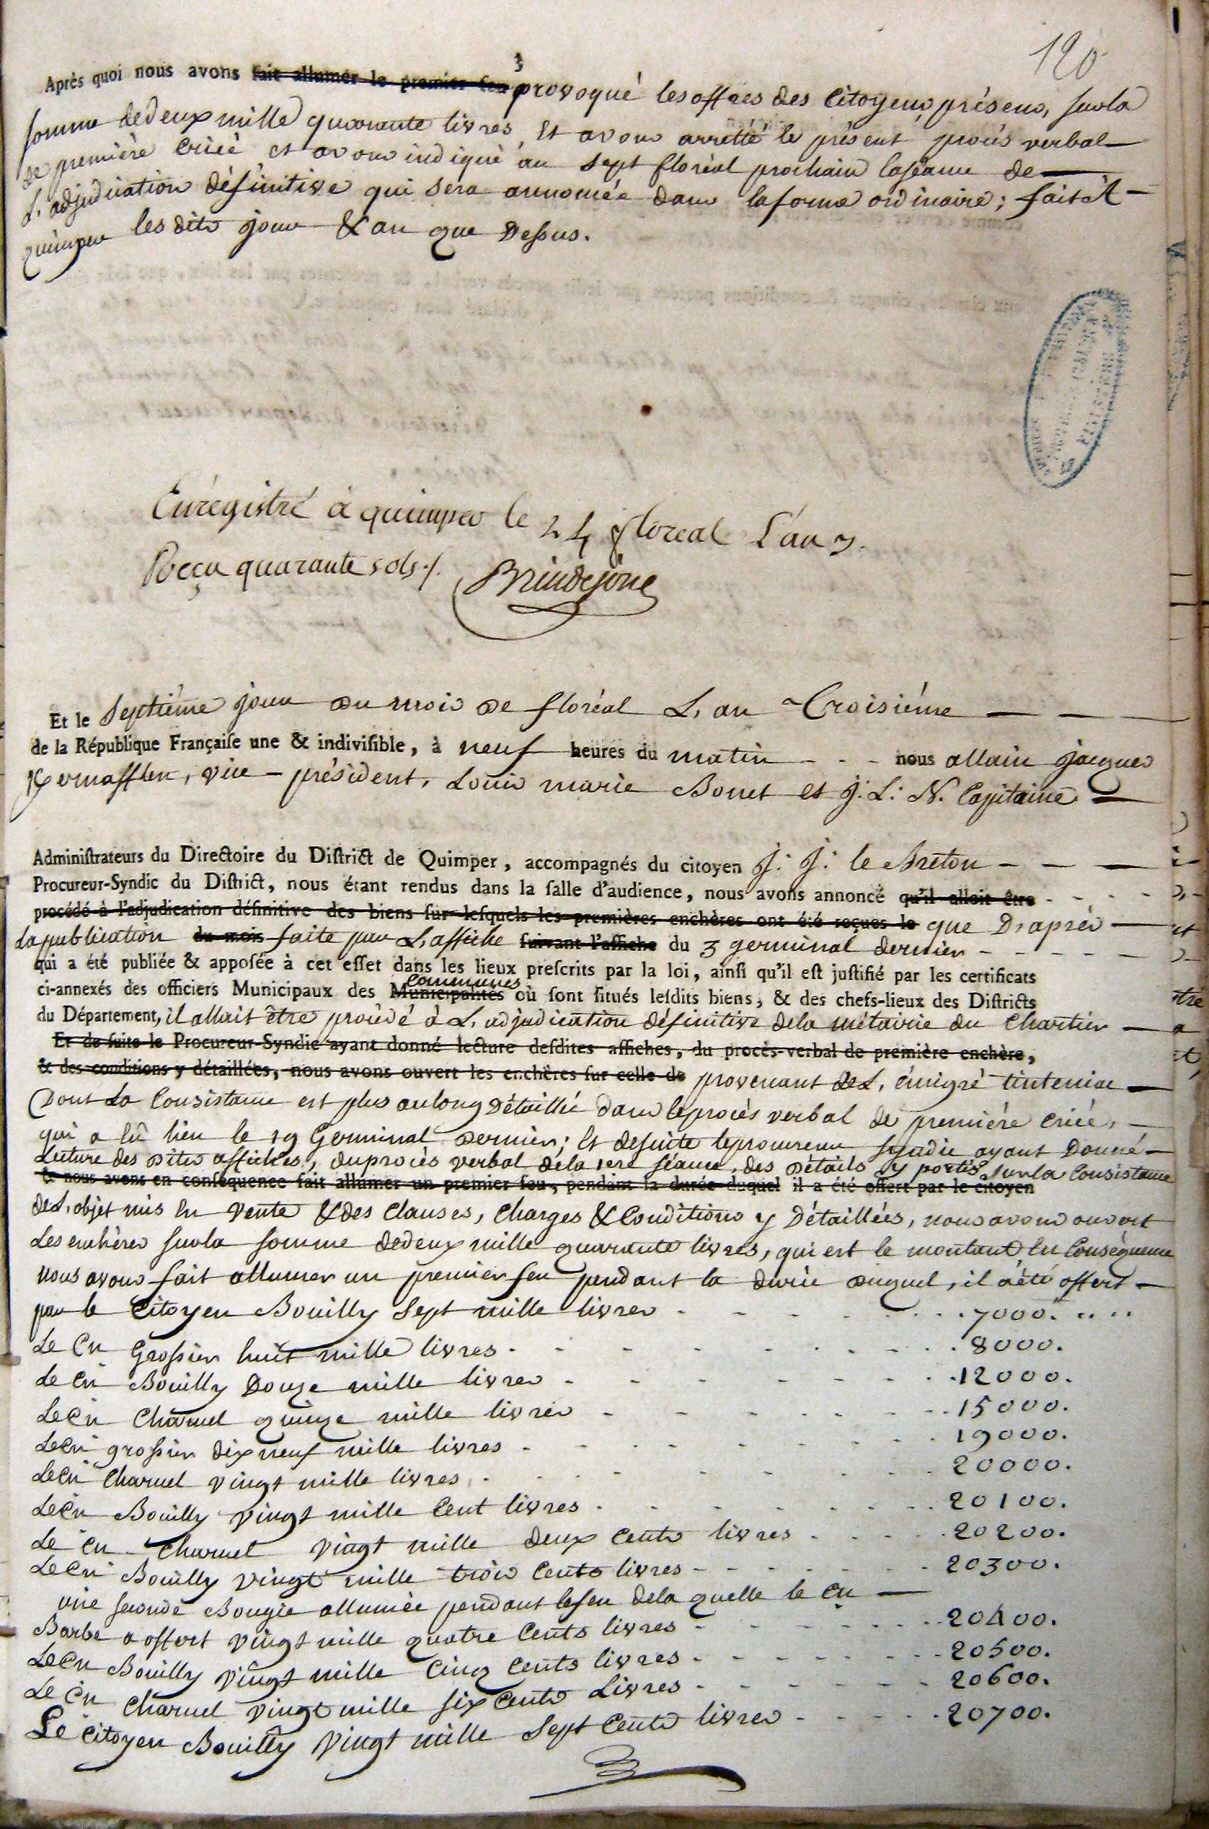 120
Après quoi nous avons fait allumer le premier feu provoqué les offres des Citoyens présens, sur la
somme de deux mille quarante livres, Et avons arretté le présent procés verbal
de première Criée et avons indiqué au sept floréal prochain la séance de
L'adjudication définitive qui sera annoncée dans la forme ordinaire; fait à
quimper les dits jour & an que Dessus.
Enregistré à quimper le 24 floreal L'an 3.
Reçu quarante sols ./. Brindejonc
Et le Septième jour du mois de floréal L'an Troisiéme
de la République Françaiſe une & indiviſible, à neuf heures du matin - - - nous allain jacques
Kermafflen, vice-président, Louis marie Bonet et J. L. N. Capitaine
Adminiſtrateurs du Directoire du Diſtrict de Quimper, accompagnés du citoyen J. J. le Breton
Procureur-Syndic du Diſtrict, nous étant rendus dans la ſalle d'audience, nous avons annoncé qu'il alloit être
procédé à l'adjudication définitive des biens ſur leſquels les premières enchères ont été reçues le que D'après
La publication du mois faite par L'affiche ſuivant l'affiche du 3 germinal dernier
qui a été publiée & appoſée à cet effet dans les lieux preſcrits par la loi, ainſi qu'il eſt juſtifié par les certificats
communes
ci-annexés des officiers Municipaux des Municipalités où ſont ſitués leſdits biens, & des chefs-lieux des Diſtricts
du Département, il allait être procédé à L'adjudication définitive de la métairie du Chartier
Et de ſuite le Procureur-Syndic ayant donné lecture deſdites affiches, du procès-verbal de première enchère,
& des conditions y détaillées, nous avons ouvert les enchères ſur celle de provenant de L'émigré tinteniac
Dont La Consistance est plus au long Détaillée dans le procès verbal de première criée,
qui a Eû lieu le 19 Germinal dernier; Et de suite le procureur syndic ayant Donné
Lecture des dites affiches, du procès verbal de la 1ere séance, des Détails y portés sur la Consistance
& nous avons en conſéquence fait allumer un premier feu, pendant la durée duquel il a été offert par le citoyen
de L'objet mis En vente & des Clauses, Charges & Conditions y Détaillées, nous avons ouvert
Les enchères sur la somme de deux mille quarante livres, qui est le montant En Conséquence
nous avons fait allumer un premier feu pendant la durée duquel, il a été offert
par le Citoyen Bouilly Sept mille livres - - - 7000.
Le Cn Grossier huit mille livres - - - 8000.
Le Cn Bouilly Douze mille livres - - - 12000.
Le Cn Charuel quinze mille livres - - - 15000.
Le Cn grossier dix neuf mille livres - - - 19000.
Le Cn Charuel vingt mille livres - - - 20000.
Le Cn Bouilly vingt mille Cent livres - - - 20100.
Le Cn Charuel vingt mille deux Cents livres - - - 20200.
Le Cn Bouilly vingt mille trois Cents livres - - - 20300.
une seconde Bougie allumée pendant le feu de la quelle le Cn
Barbe a offert vingt mille quatre Cents livres - - - 20400.
Le Cn Bouilly vingt mille Cinq Cents livres - - - 20500.
Le Cn Charuel vingt mille six Cents Livres - - - 20600.
Le Citoyen Bouilly vingt mille Sept Cents livres - - - 20700.